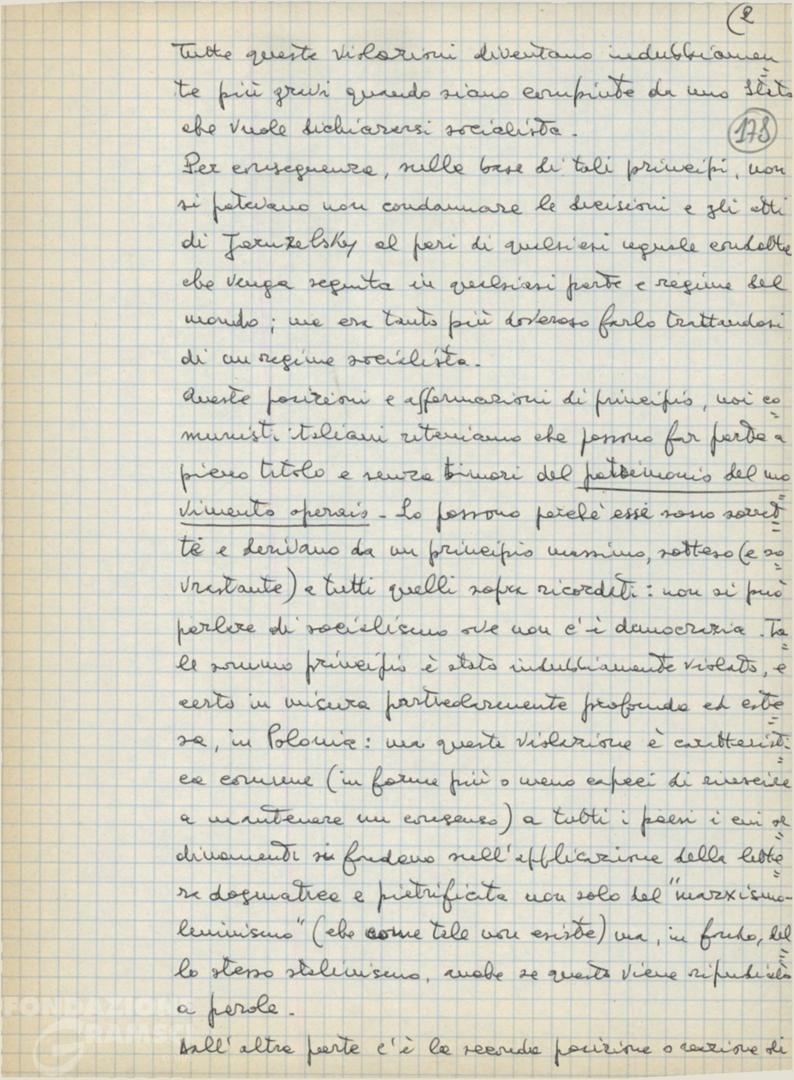 (2
Tutte queste violazioni diventano indubbiamen=
te più gravi quando siano compiute da uno Stato
che vuole dichiararsi socialista.
178
Per conseguenza, sulla base di tali principi, non
si potevano non condannare le decisioni e gli atti
di Jaruzelsky al pari di qualsiasi uguale condotta
che venga seguita in qualsiasi parte e regime del
mondo; ma era tanto più doveroso farlo trattandosi
di un regime socialista.
Queste posizioni e affermazioni di principio, noi co=
munisti italiani riteniamo che possono far parte a
pieno titolo e senza timori del patrimonio del mo=
vimento operaio. Lo possono perché esse sono sorret=
te e derivano da un principio massimo, sotteso (e so=
vrastante) a tutti quelli sopra ricordati: non si può
parlare di socialismo ove non c'è democrazia. Ta=
le sommo principio è stato indubbiamente violato, e
certo in misura particolarmente profonda ed este=
sa, in Polonia: ma questa violazione è caratteristi=
ca comune (in forme più o meno capaci di riuscire
a mantenere un consenso) a tutti i paesi i cui or=
dinamenti si fondano sull'applicazione della lette=
ra dogmatica e pietrificata non solo del "marxismo-
leninismo" (che come tale non esiste) ma, in fondo, del
lo stesso stalinismo, anche se questo viene ripudiato
a parole.
Dall'altra parte c'è la seconda posizione o reazione di
FONDAZIONE
GRAMSCI